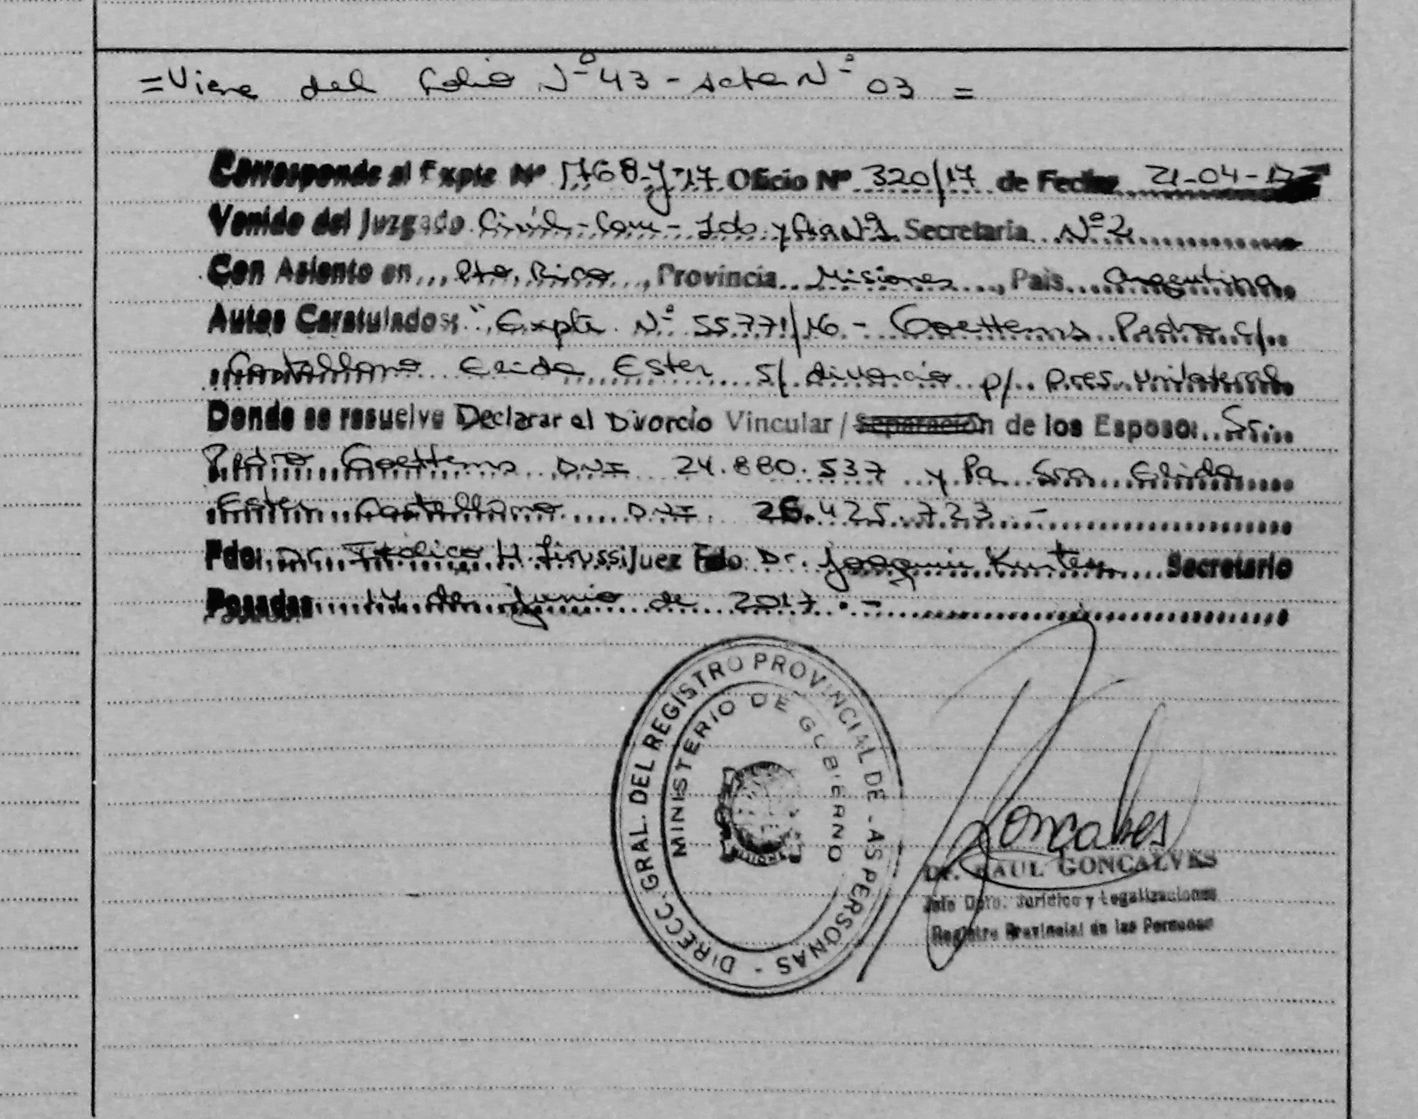 = Viene del folio Nº 43 - Acta Nº 03 =
Corresponde al Expte Nº 1768-Y-17 Oficio Nº 320/17 de Fecha 21-04-17
Venido del Juzgado Civil - Com - Lab y Flia Nº 1 Secretaría Nº 2
Con Asiento en Pto. Rico, Provincia Misiones, País Argentina
Autos Caratulados: "Expte. Nº 55771/16 - Goettems Pedro c/
Castellano Elida Ester s/ divorcio p/ Pres. Unilateral
Donde se resuelve Declarar el Divorcio Vincular / Separación de los Esposos: Sr.
Pedro Goettems DNI 24.880.537 y la Sra Elida
Ester Castellano DNI 26.425.723 -
Fdo: Dr. H. Juez Fdo Dr. Joaquin Secretario
Posadas 14 de Junio de 2017. -
DIRECC. GRAL. DEL REGISTRO PROVINCIAL DE - AS PERSONAS -
MINISTERIO DE GOBIERNO
MISIONES
Goncalves
Dr. RAUL GONCALVES
Jefe Dpto. Jurídico y Legalizaciones
Registro Provincial de las Personas